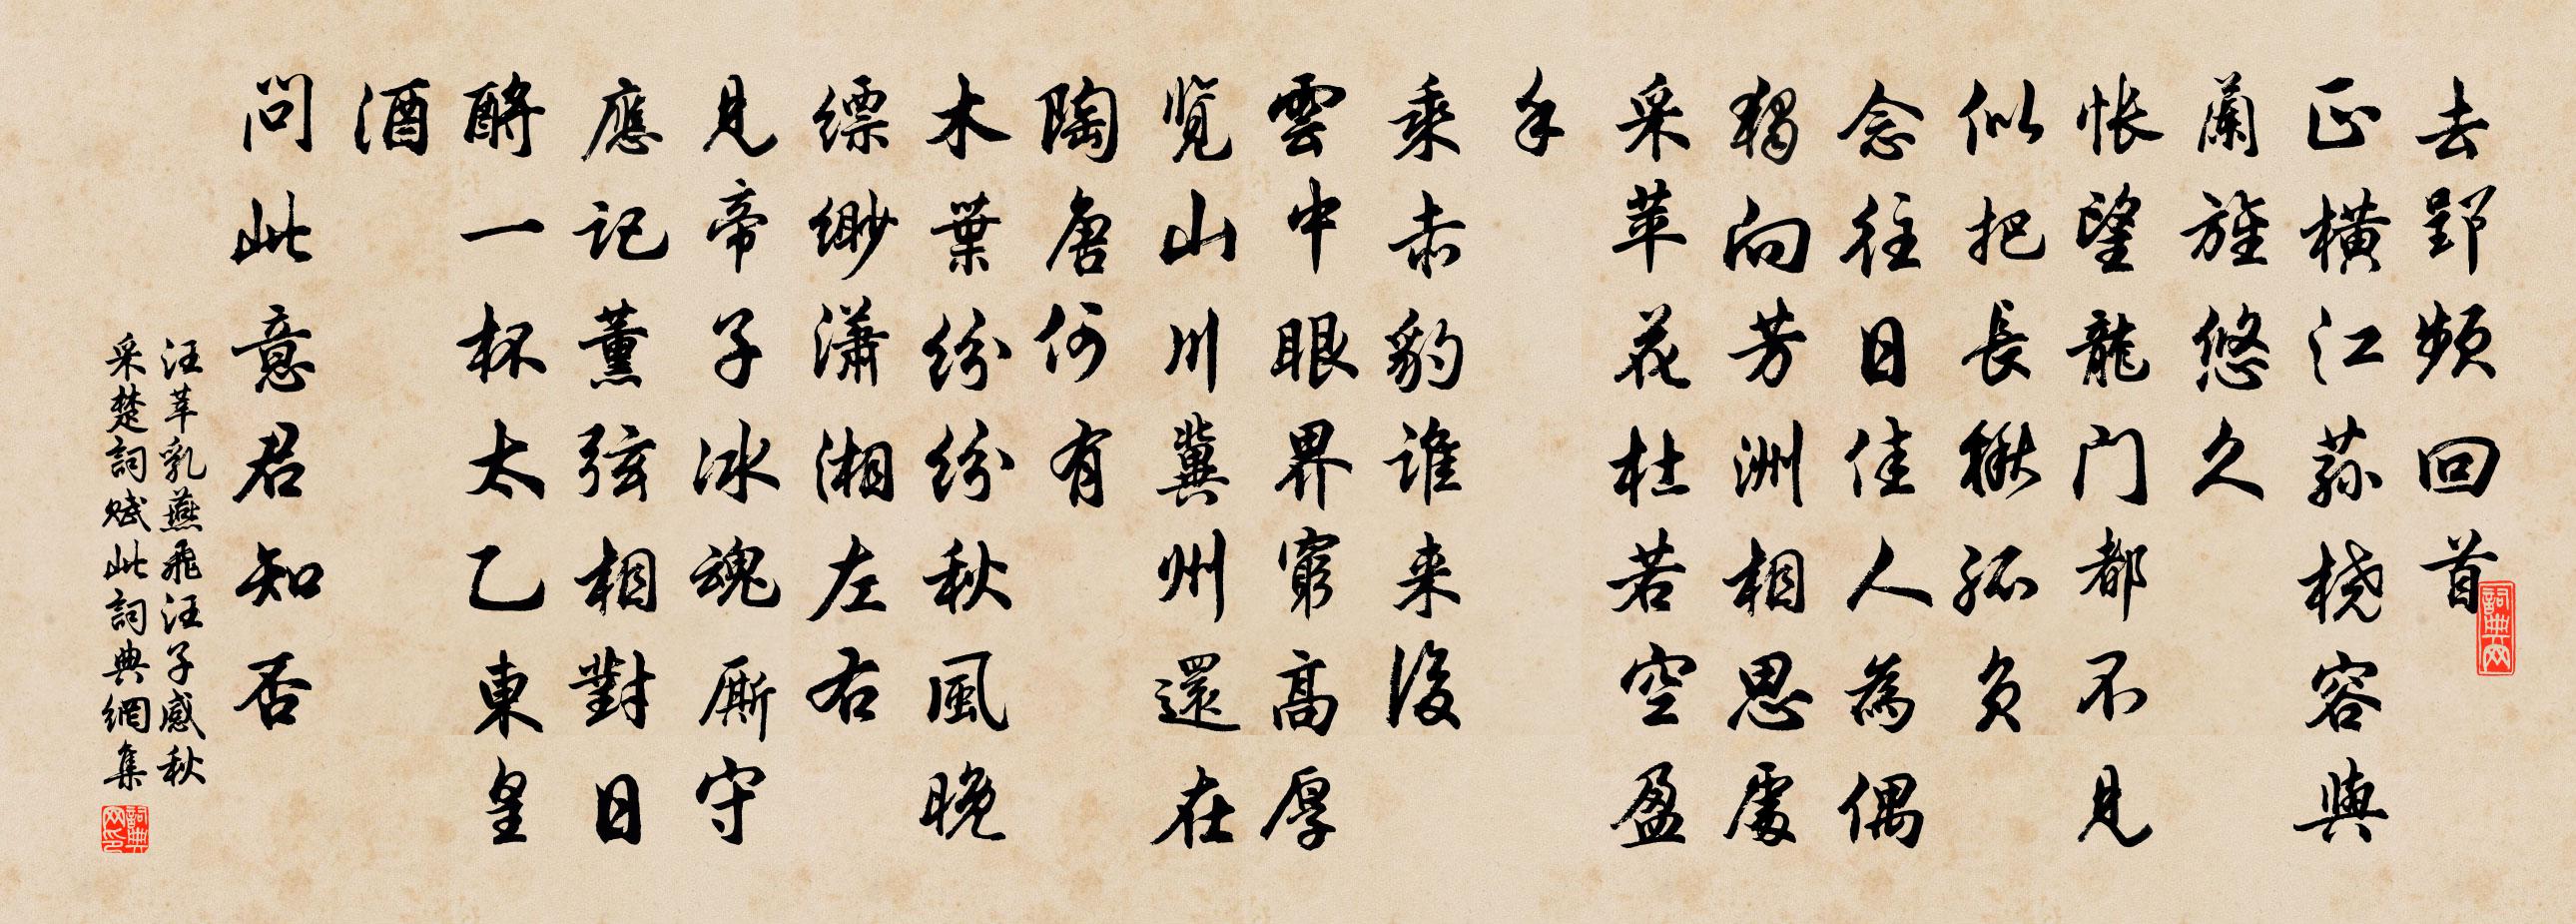 去郢频回首
正橫江荪桡容與
蘭旌悠久
怅望龍门都不見
似把長楸孤负
念往日佳人為偶
獨向芳洲相思處
采苹花杜若空盈
手
乘赤豹谁来後
雲中眼界窮高厚
览山川冀州還在
陶唐何有
木葉纷纷秋風晚
缥缈潇湘左右
見帝子冰魂厮守
應記薰弦相對日
酹一杯太乙東皇
酒
問此意君知否
汪莘乳燕飛汪子感秋
采楚詞賦此詞典網集
詞典网
詞典网印